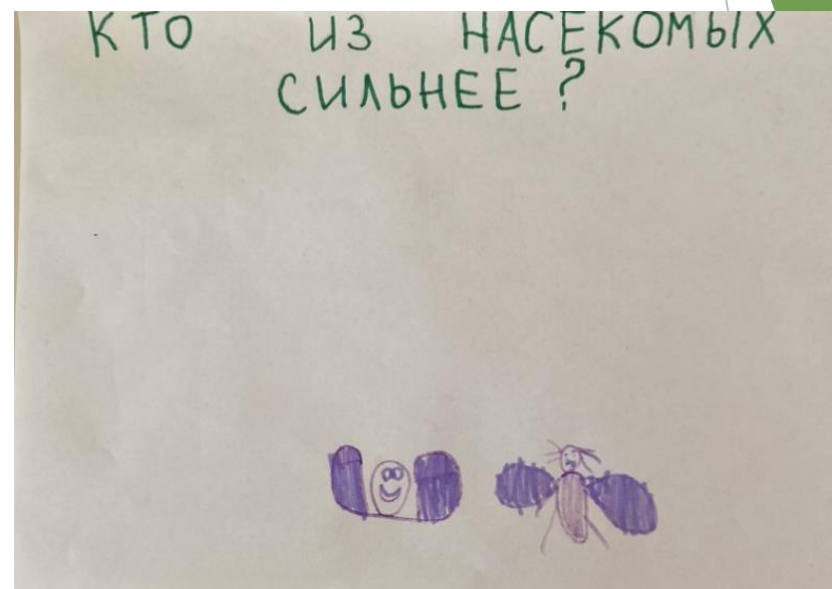 КТО ИЗ НАСЕКОМЫХ
СИЛЬНЕЕ ?